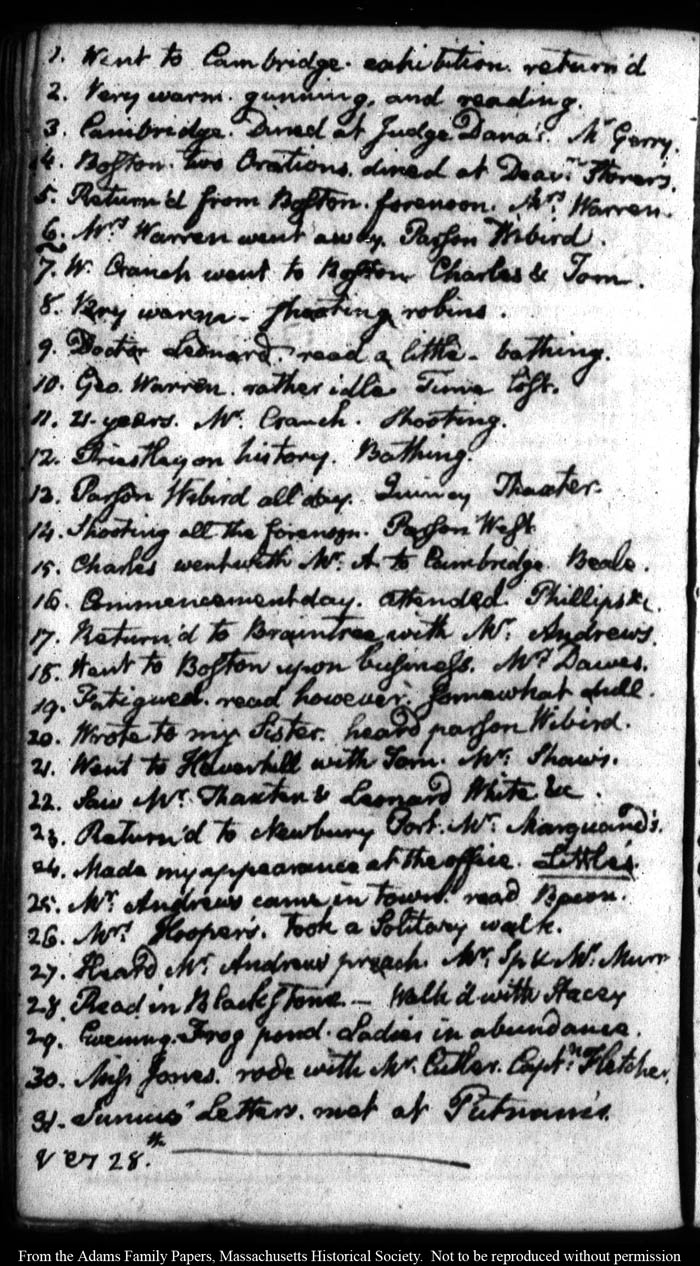 1. Went to Cambridge. exhibition. return'd
2. Very warm. gunning, and reading.
3. Cambridge. Dined at Judge Dana's. Mr. Gerry.
4. Boston. two Orations. dined at Deacn. Storers.
5. Return'd from Boston. forenoon. Mrs. Warren.
6. Mrs. Warren went away. Parson Wibird.
7. W. Cranch went to Boston Charles & Tom.
8. Very warm – shooting robins.
9. Doctor Leonard. read a little – bathing.
10. Geo. Warren. rather idle Time lost.
11. 21. years. Mr. Cranch. Shooting.
12. Priestley on history. Bathing.
13. Parson Wibird all day. Quincy Thaxter.
14. Shooting all the forenoon. Parson West.
15. Charles went with Mr. A. to Cambridge. Beale.
16. Commencement day. attended. Phillips &c.
17. Return'd to Braintree with Mr. Andrews.
18. Went to Boston upon business. Mrs. Dawes.
19. Fatigued. read however. Somewhat dull.
20. Wrote to my Sister. heard parson Wibird.
21. Went to Haverhill with Tom. Mr. Shaw's.
22. Saw Mr. Thaxter & Leonard White &c.
23. Return'd to Newbury Port. Mr. Marquand's.
24. Made my appearance at the office. Little's
25. Mr. Andrews came in town. read Bacon.
26. Mrs. Hooper's. took a Solitary walk.
27. Heard Mr. Andrews preach. Mr. Sp & Mr. Murr
28. Read in Blackstone. – Walk'd with Stacey
29. Evening. Frog pond. Ladies in abundance.
30. Miss Jones. rode with Mr. Cutler. Captn. Fletcher.
31. Junius' Letters. met at Putnam's.
28.th
From the Adams Family Papers, Massachusetts Historical Society. Not to be reproduced without permission